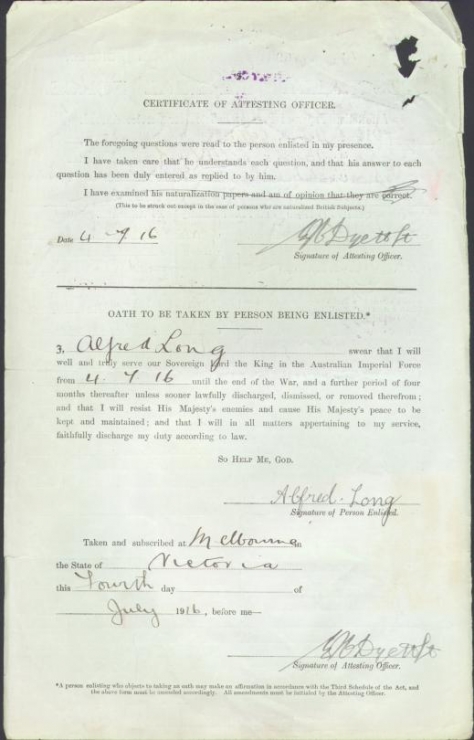 CERTIFICATE OF ATTESTING OFFICER.
The foregoing questions were read to the person enlisted in my presence.
I have taken care that he understands each question, and that his answer to each
question has been duly entered as replied to by him.
I have examined his naturalization papers and am of opinion that they are correct.
(This to be struck out except in the case of persons who are naturalized British Subjects.)
Date 4 7 16
Signature of Attesting Officer.
OATH TO BE TAKEN BY PERSON BEING ENLISTED.*
I, Alfred Long swear that I will
well and truly serve our Sovereign Lord the King in the Australian Imperial Force
from 4. 7 16 until the end of the War, and a further period of four
months thereafter unless sooner lawfully discharged, dismissed, or removed therefrom;
and that I will resist His Majesty's enemies and cause His Majesty's peace to be
kept and maintained; and that I will in all matters appertaining to my service,
faithfully discharge my duty according to law.
SO HELP ME, GOD.
Alfred Long
Signature of Person Enlisted.
Taken and subscribed at Melbourne in
the State of Victoria
this Fourth day of
July 1916, before me—
Signature of Attesting Officer.
*A person enlisting who objects to taking an oath may make an affirmation in accordance with the Third Schedule of the Act, and
the above form must be amended accordingly. All amendments must be initialed by the Attesting Officer.